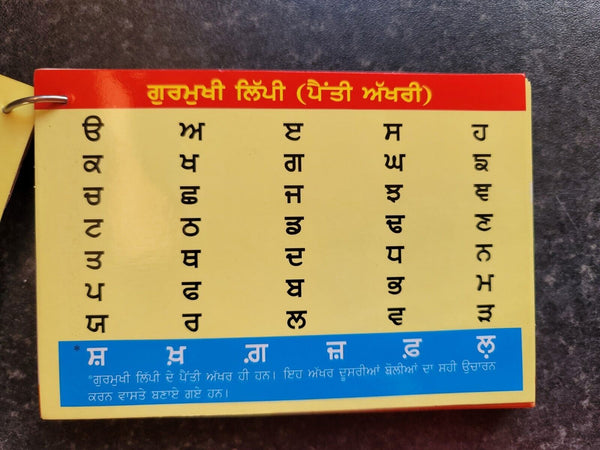 ਗੁਰਮੁਖੀ ਲਿੱਪੀ (ਪੈਂਤੀ ਅੱਖਰੀ)
ੳ ਅ ੲ ਸ ਹ
ਕ ਖ ਗ ਘ ਙ
ਚ ਛ ਜ ਝ ਞ
ਟ ਠ ਡ ਢ ਣ
ਤ ਥ ਦ ਧ ਨ
ਪ ਫ ਬ ਭ ਮ
ਯ ਰ ਲ ਵ ੜ
*ਸ਼ ਖ਼ ਗ਼ ਜ਼ ਫ਼ ਲ਼
"ਗੁਰਮੁਖੀ ਲਿੱਪੀ ਦੇ ਪੈਂਤੀ ਅੱਖਰ ਹੀ ਹਨ। ਇਹ ਅੱਖਰ ਦੂਸਰੀਆਂ ਬੋਲੀਆਂ ਦਾ ਸਹੀ ਉਚਾਰਨ
ਕਰਨ ਵਾਸਤੇ ਬਣਾਏ ਗਏ ਹਨ।